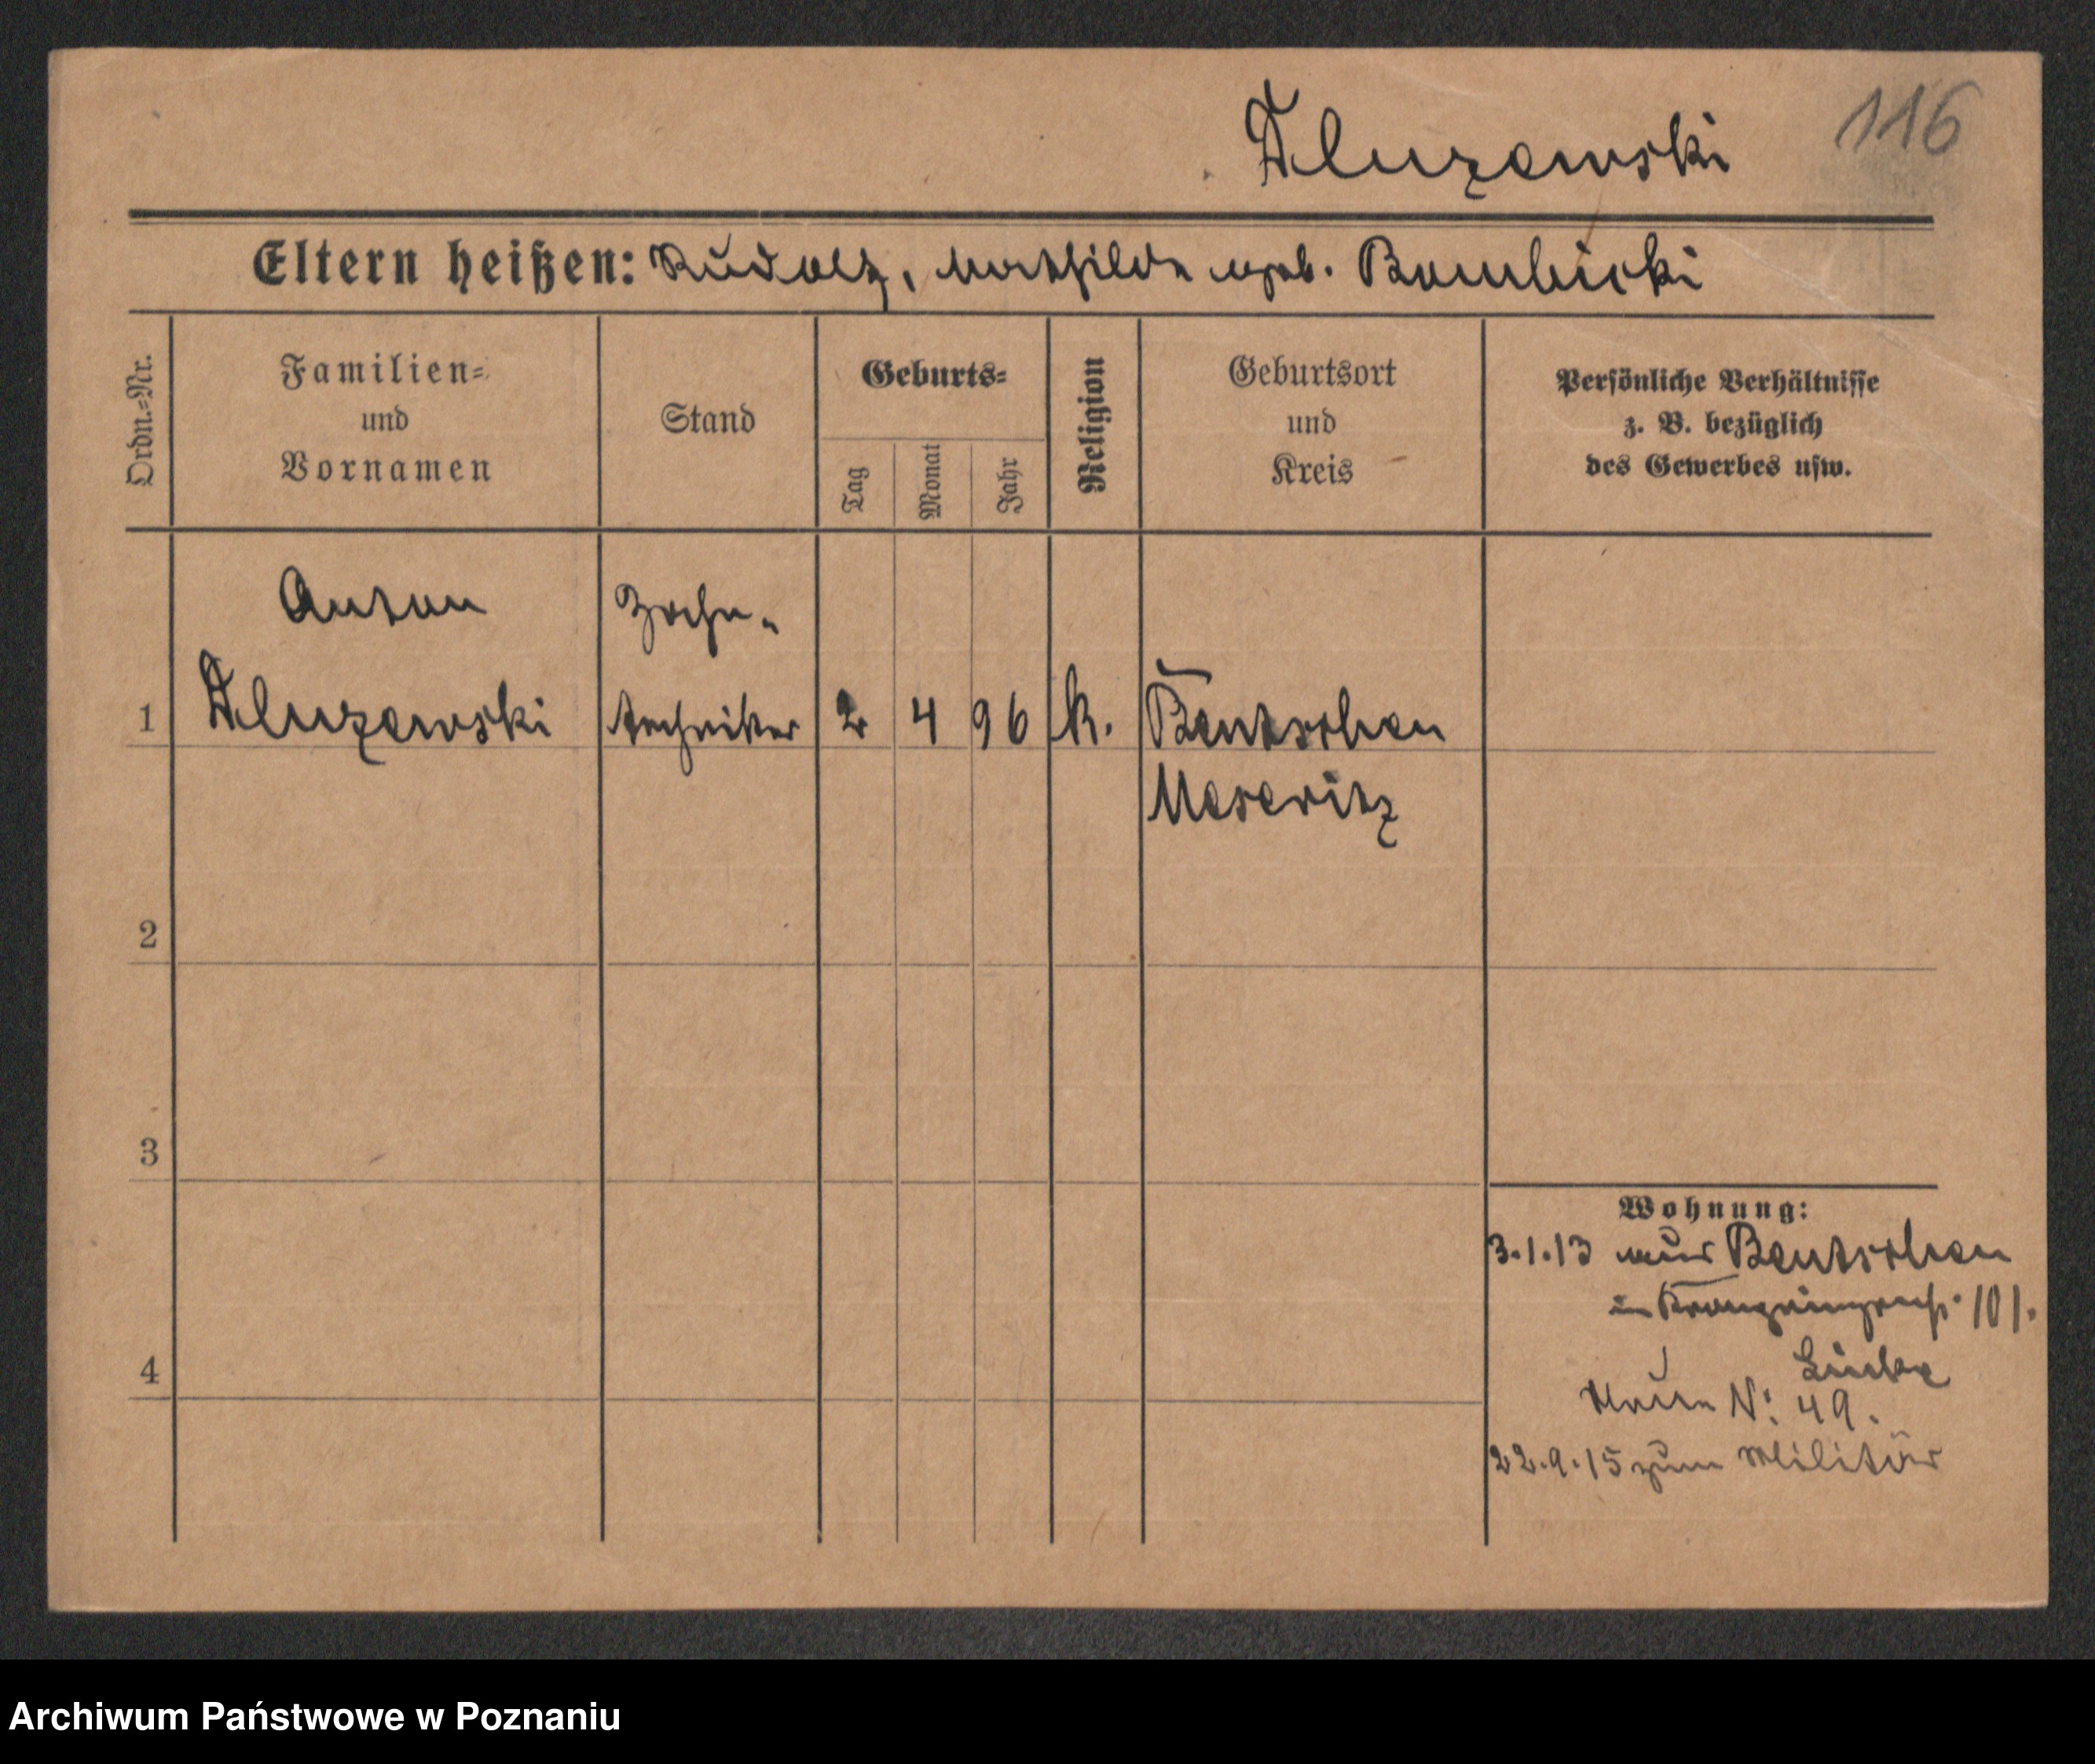 116
Dluzewski
Eltern heißen: Rudolf, Mathilde geb. Bombicki
Ordn.-Nr.
Familien-
und
Vornamen
Stand
Geburts-
Tag
Monat
Jahr
Religion
Geburtsort
und
Kreis
Persönliche Verhältnisse
z. B. bezüglich
des Gewerbes usw.
Anton
Zahn-
1 Dluzewski techniker 2 4 96 k. Bentschen
Meseritz
2
3
4
Wohnung:
3.1.13 aus Bentschen
101.
N: 49.
22.9.15 zum Militär
Archiwum Państwowe w Poznaniu